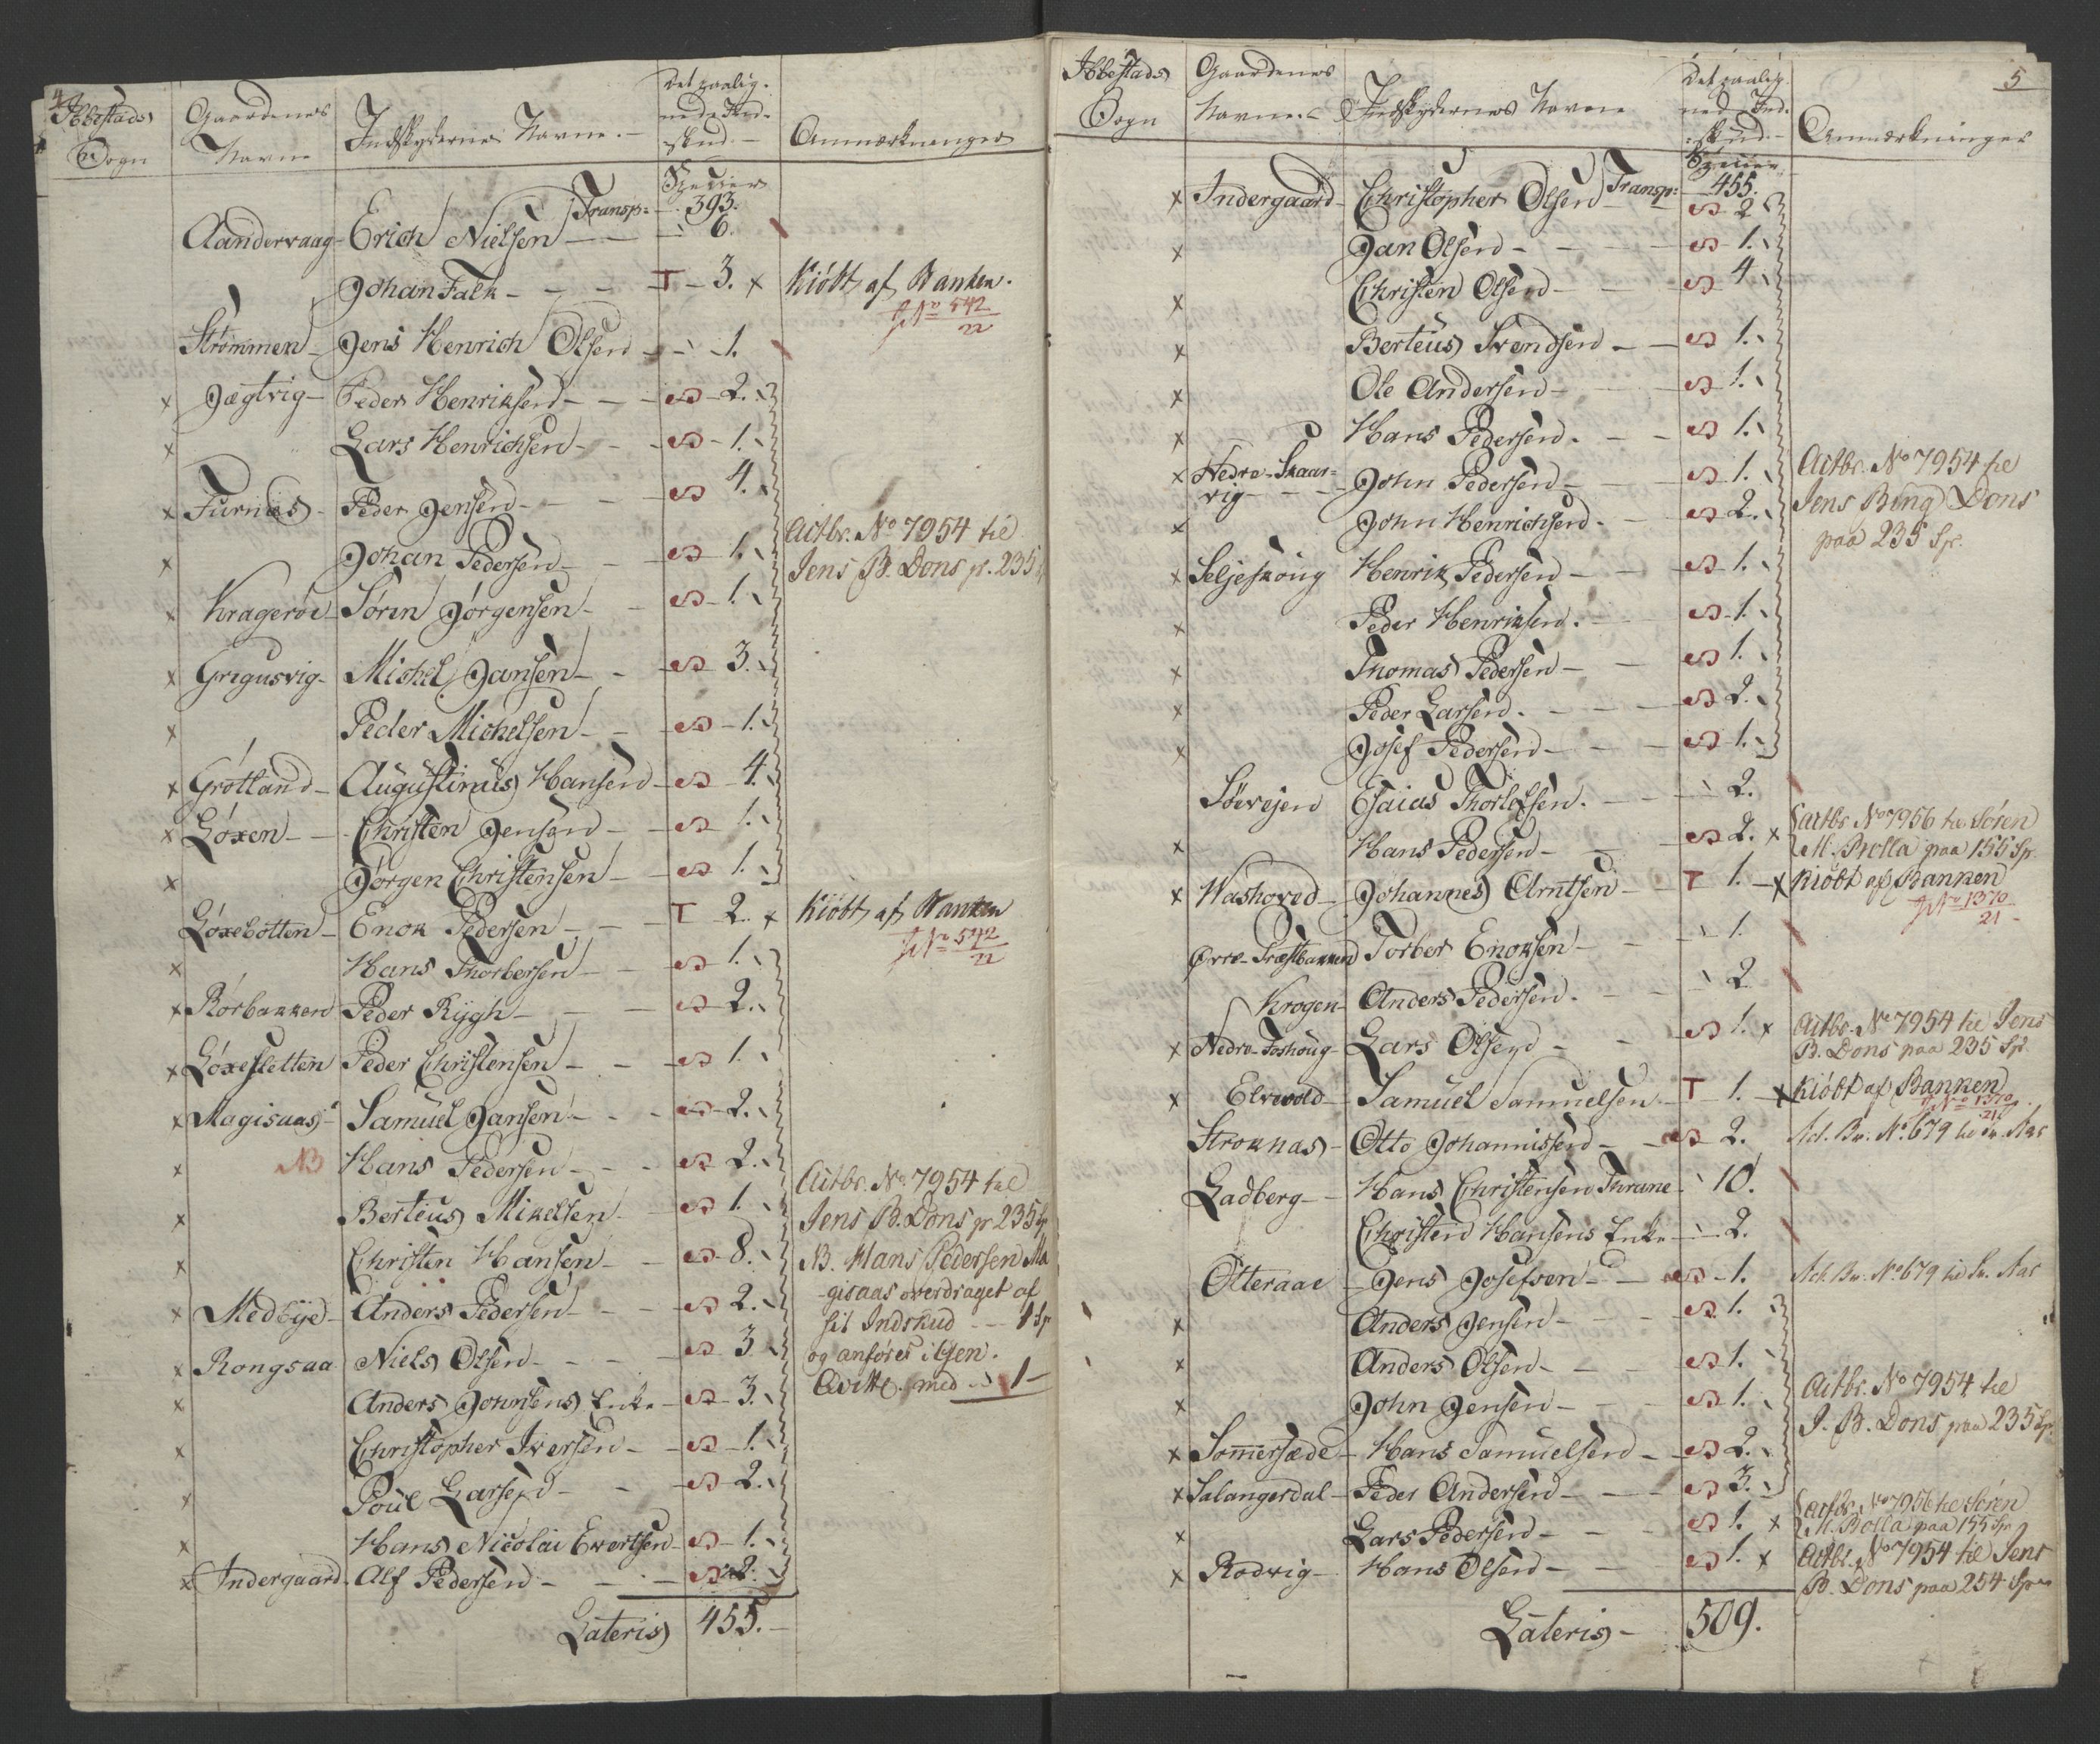 4
Ibbestads Sogn | Gaardenes Navne | Indskydernes Navne.- | Det paalig- nede Ind- skud.- | Anmærkninger
Specier
Transp: 393.
Aandervaag- Erich Nielsen 6.
Johan Falk - - - T - 3. x Kiöbt af Banken.
J No 542/22
Strømmen- Jens Henrich Olsen - 1.
x Jægtvig- Peder Henriksen - - 2.
x Lars Henrichsen - - 1.
x Furnæs- Peder Jensen - - 4.
x Johan Pedersen - - 1. Actbr. No 7954 til
Jens B. Dons p. 235
x Kragerøe- Sören Jörgensen - 1.
x Grigusvig- Michel Jansen - 3.
x Peder Michelsen - - 1.
x Grötland- Augustinus Hansen - 4.
x Löxen- - Christen Jensen - - 1.
x Jörgen Christensen - - 1.
Löxebotten- Enok Pedersen - - T 2. x Kiöbt af Banken
J No 542/22
x Hans Thorbersen - - 1.
x Rörbakken Peder Rygh - - 2.
x Löxesletten Peder Christensen - - 1.
x Magisaas- Samuel Jansen - - 2.
x NB Hans Pedersen - - 2.
Actbr. No 7954 til
x Berteus Mikelsen - 1. Jens B. Dons pr 235 Sp
x Christen Hansen - - 8. NB. Hans Pedersen Ma
gisaas overdraget af
x Medbye- Anders Pedersen - - 2. sit Indskud - - 1 Sp
x Rongsaa Niels Olsen - - 3 og anføres i Gen.
x Anders Johnsens Enke - 3. Qvitt. med - 1 -
x Christopher Iversen - - 1.
x Poul Larsen - - 2.
x Hans Nicolai Evertsen - 1.
x Indergaard. Alf Pedersen - - 2.
Lateris 455.-
5
Ibbestads Sogn | Gaardenes Navne.- | Indskydernes Navne | Det paalig- nede Ind- skud.- | Anmærkninger
Specier
Transp: 455.
x Indergaard- Christopher Olsen 2
x Jan Olsen - - 1.
x Christen Olsen - - 4
x Berteus Svendsen - - 1.
x Ole Andersen - - 1.
x Hans Pedersen. - - 1.
x Nedre-Skaar- John Pedersen - - 1. Actbr. No 7954 til
vig- - -
x John Henrichsen. - 2. Jens Bing Dons
paa 235 Sp.
x Seljeskoug Henrik Pedersen - - 1.
x Peder Henriksen. - 1.
x Thomas Pedersen - - 1.
x Peder Larsen. - - 2.
x Josef Pedersen - - 1.
Söevejen Esaias Thorlofsen. - 2.
x Hans Pedersen - 2. x Actbr No 7956 til Sören
M. Brolla paa 155 Sp.
x Washoved- Johannes Arntsen - T 1. - x Kiöbt af Banken
J No 1370/21
Övre-Præstbakken Torber Enoksen - - 1.
Krogen- Anders Pedersen. - - 2
x Nedre-Foshoug- Lars Olsen - - 1. x Actbr. No 7954 til Jens
B. Dons paa 235 Sp.
x Elvevold- Samuel Samuelsen - T 1. - x Kiöbt af Banken
J No 1370/21
Stroknas- Otto Johannissen - - 2. Act. Br. No 679 til Aas
Ladberg- - Hans Christensen Thrane 10.
Christen Hansens Enke - 2.
Otteraae - Jens Josefsen - - 1. Act. Br. No 679 til Aas
x Anders Jensen - - 1.
x Anders Olsen - - 1.
x John Jensen - - 1. Actbr. No 7954 til
J. B. Dons paa 235 Sp.
x Sommersæde- Hans Samuelsen - 2.
x Salangerdal- Peder Andersen - - 3.
x Lars Pedersen - - 1. x Actbr. No 7956 til Sören
M. Brolla paa 155 Sp.
x Rodvig- Hans Olsen - - 1. x Actbr. No 7954 til Jens
B. Dons paa 254 Sp
Lateris - 509.